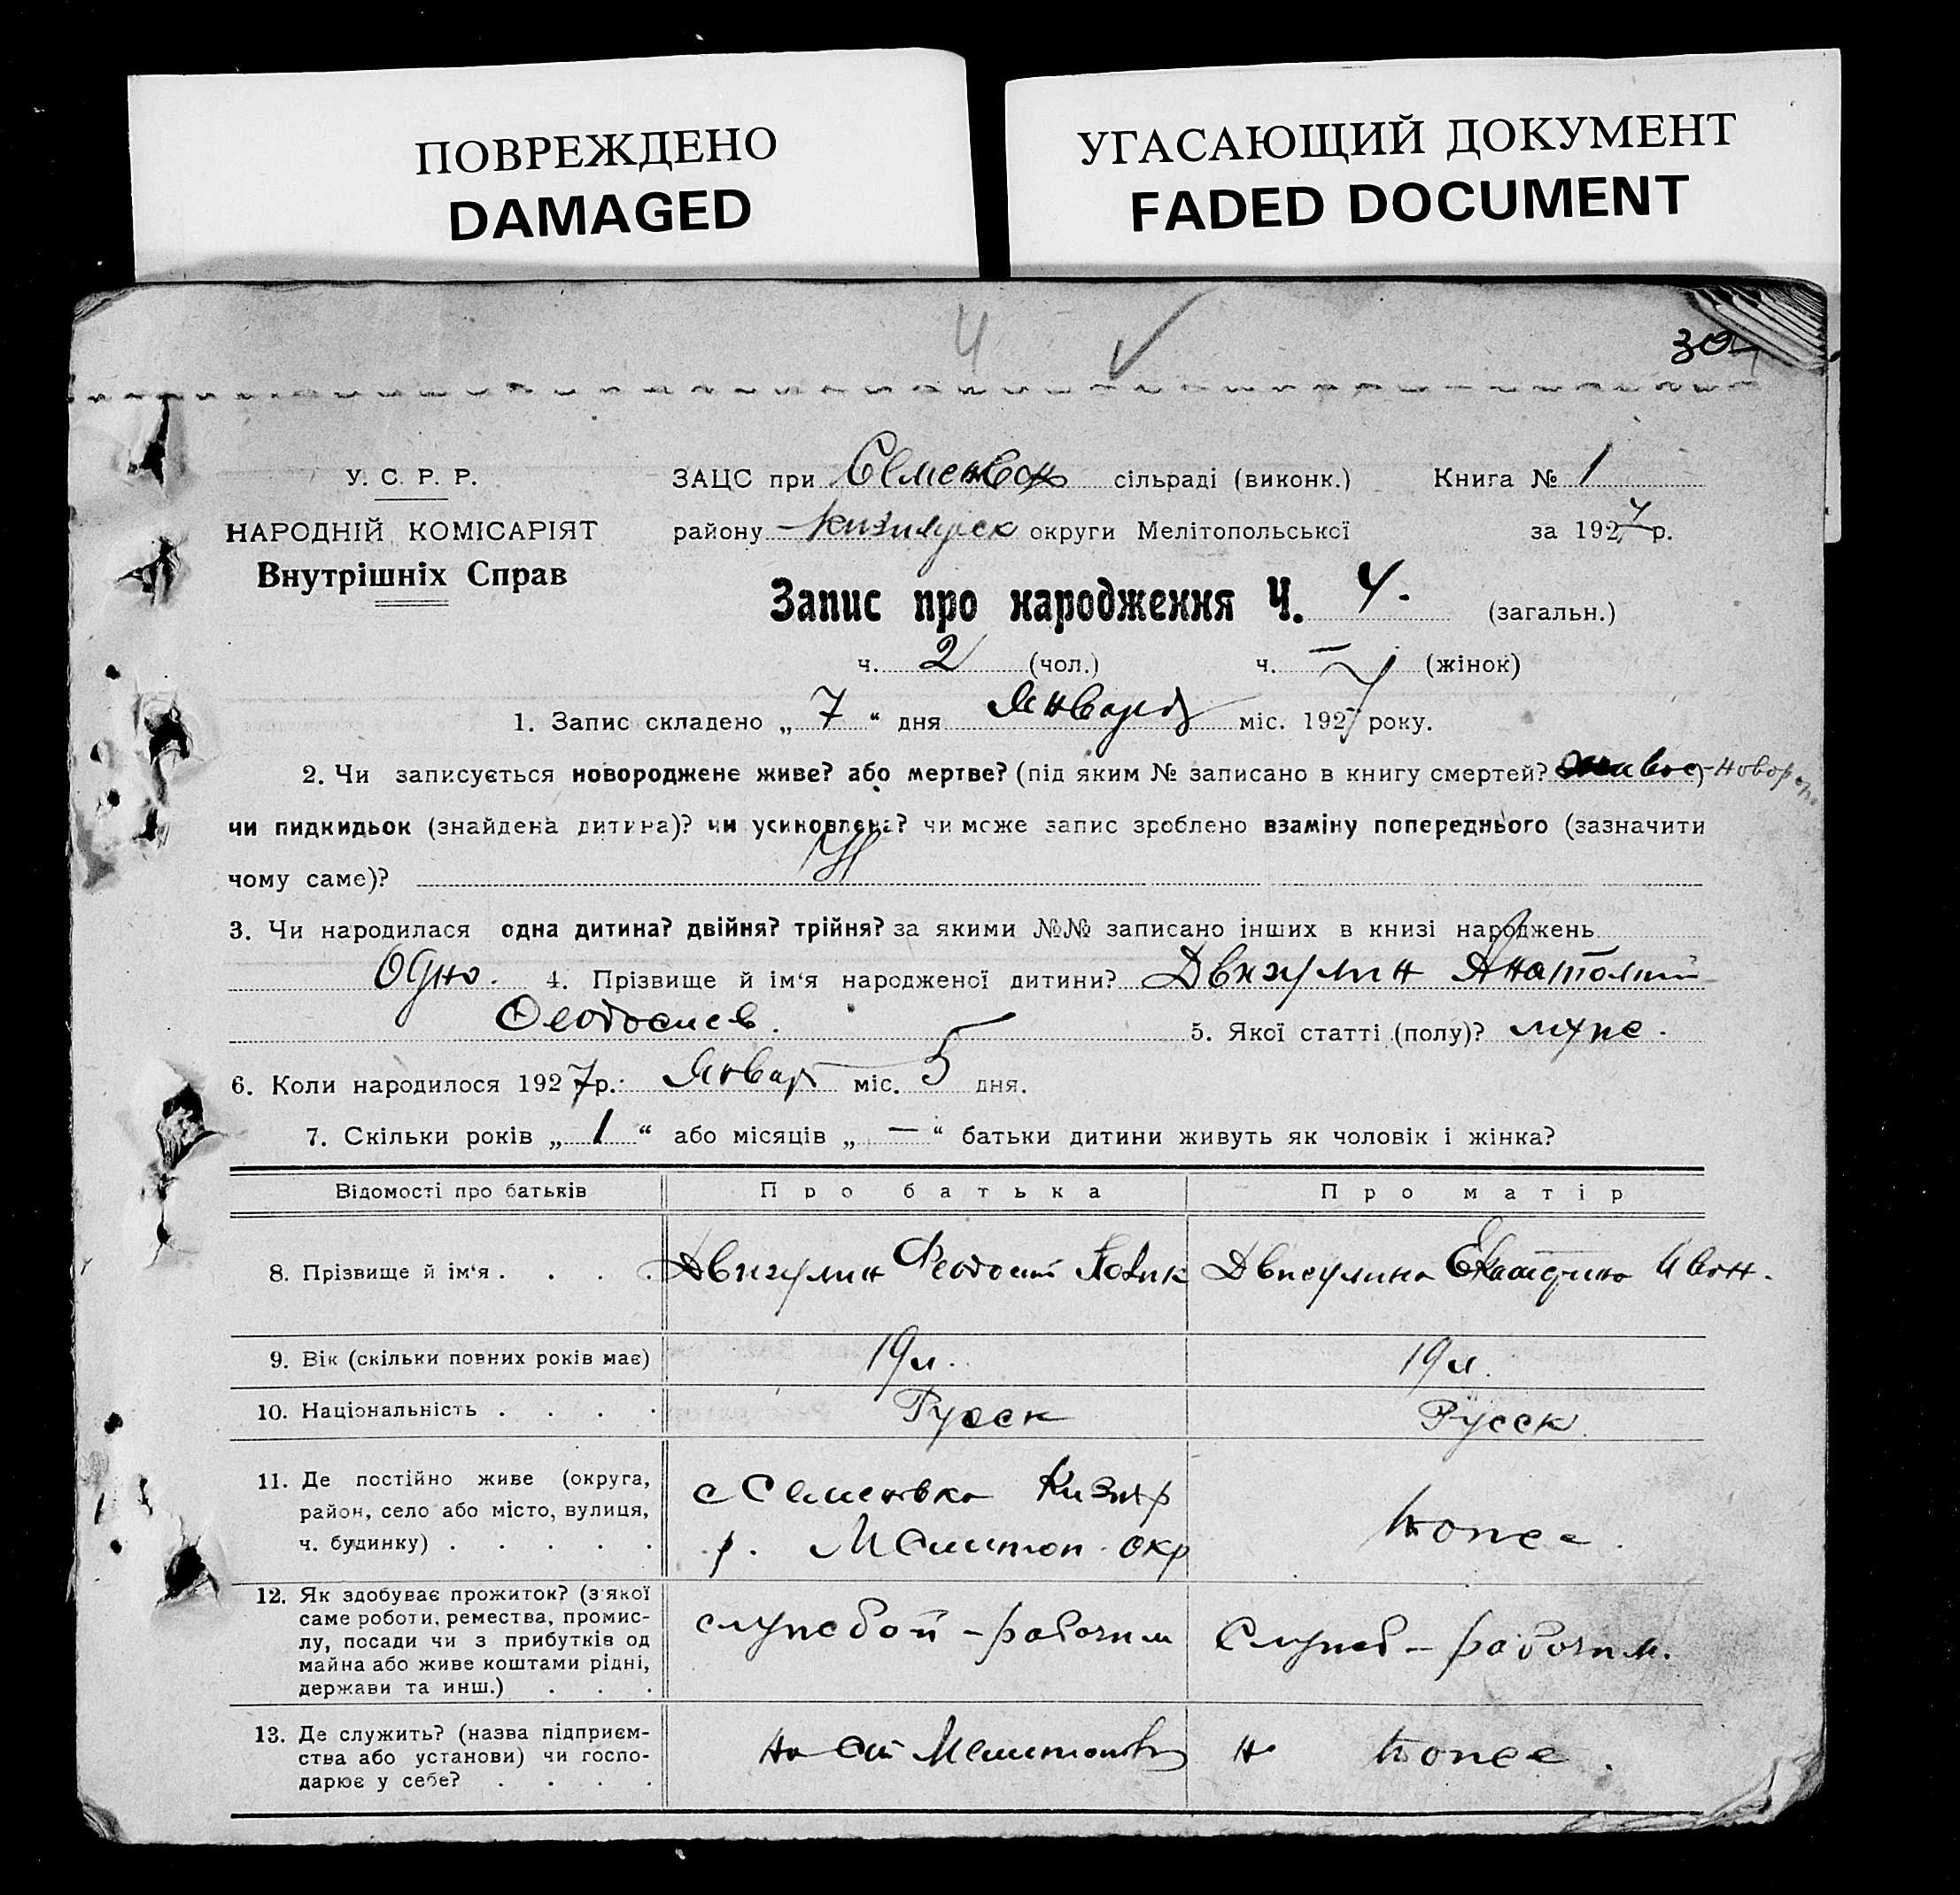 ПОВРЕЖДЕНО
DAMAGED
УГАСАЮЩИЙ ДОКУМЕНТ
FADED DOCUMENT
4
У. С. Р. Р.
НАРОДНІЙ КОМІСАРІЯТ
Внутрішніх Справ
ЗАЦС при Семенвск сільраді (виконк.) Книга № 1
району округи Мелітопольської за 1927 р.
Запис про народження Ч. 4. (загальн.)
ч. 2 (чол.) ч. — (жінок)
1. Запис складено „ 7 “ дня Января міс. 1927 року.
2. Чи записується новороджене живе? або мертве? (під яким № записано в книгу смертей? живое)
чи пидкидьок (знайдена дитина)? чи усиновлена? чи може запис зроблено взаміну попереднього (зазначити
чому саме)?
3. Чи народилася одна дитина? двійня? трійня? за якими №№ записано інших в книзі народжень
Одно. 4. Прізвище й ім‘я народженої дитини? Двигулин Анатолий
Феодосиев. 5. Якої статті (полу)? муж.
6. Коли народилося 1927 р. Январ міс. 5 дня.
7. Скільки років „ 1 “ або місяців „ — “ батьки дитини живуть як чоловік і жінка?
Відомості про батьків Про батька Про матір
8. Прізвище й ім‘я . . . . Двигулин Феодосий Двигулина Екатерина Иван.
9. Вік (скільки повних років має) 19 л. 19 л.
10. Національність . . . . Русск Русск.
11. Де постійно живе (округа,
район, село або місто, вулиця,
ч. будинку) . . . . .
с Семеновка Кизияр
р. Мелитоп. окр
тоже.
12. Як здобуває прожиток? (з якої
саме роботи, ремества, промис-
лу, посади чи з прибутків од
майна або живе коштами рідні,
держави та инш.) . . .
службой – рабочим
Служб – рабочим.
13. Де служить? (назва підприєм-
ства або установи) чи госпо-
дарює у себе? . . . .
на ст Мелитополь
тоже.